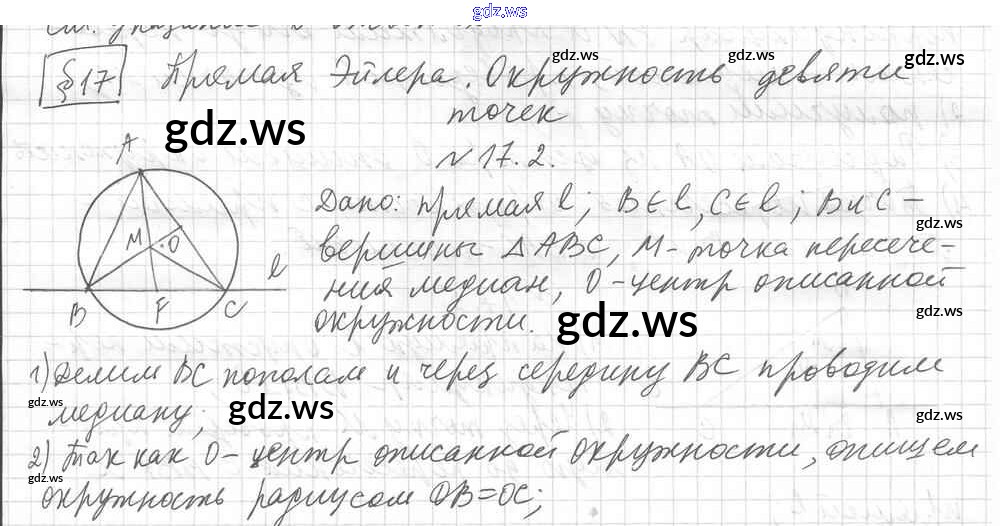 gdz.ws
§17 Прямая Эйлера. Окружность девяти
gdz.ws gdz.ws gdz.ws
точек
gdz.ws
№ 17.2.
A
M O
B F C l
Дано: прямая l; B∈l, C∈l; B и C –
gdz.ws
вершины △ABC, M – точка пересече-
ния медиан, O – центр описанной
окружности.
gdz.ws gdz.ws
1) Делим BC пополам и через середину BC проводим
gdz.ws gdz.ws gdz.ws
медиану;
2) Так как O – центр описанной окружности, опишем
gdz.ws
окружность радиусом OB=OC;